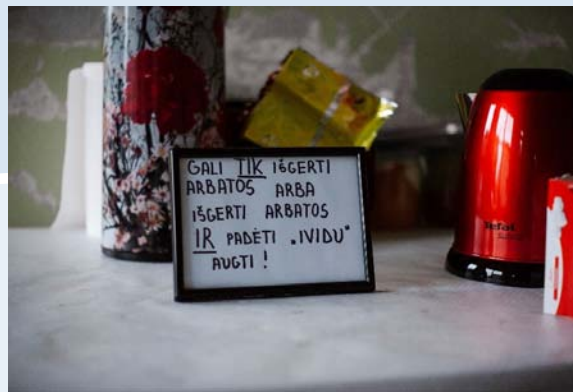 GALI TIK IŠGERTI
ARBATOS ARBA
IŠGERTI ARBATOS
IR PADĖTI „IVIDU“
AUGTI !
Tefal